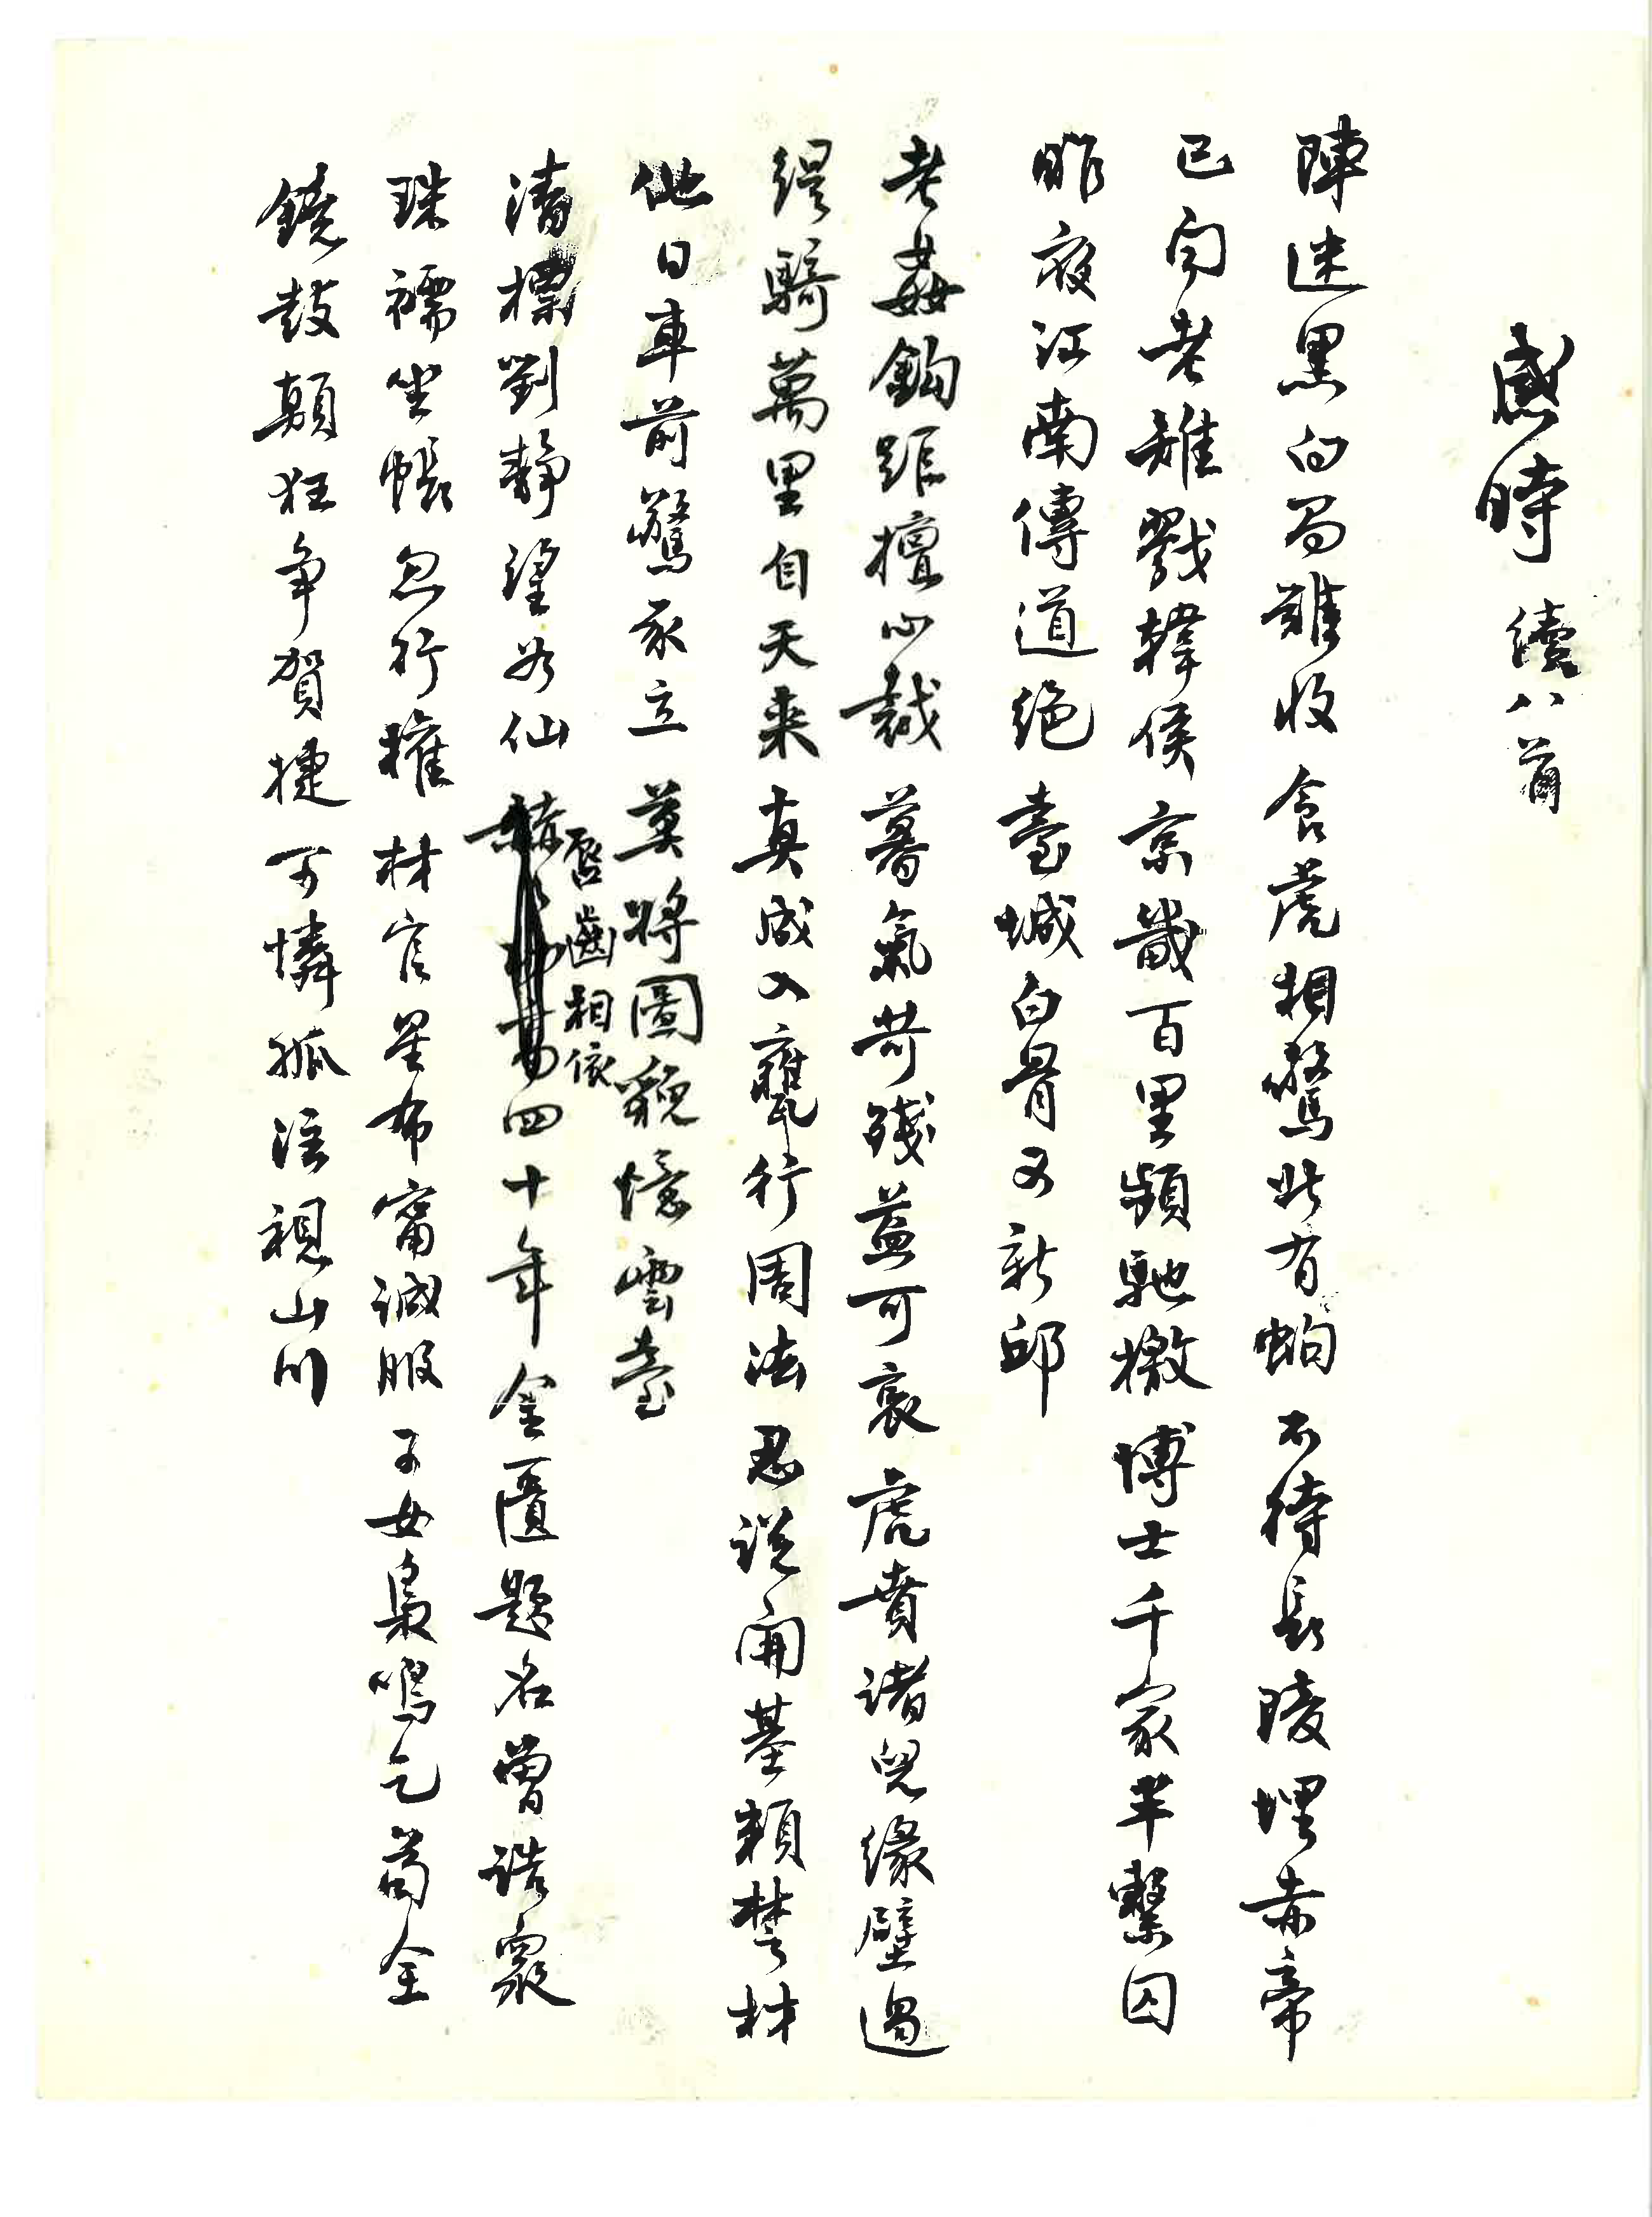 感時 續八首
陣迷黑白局難收 貪虎相驚此有蜪 不待長陵埋赤帝
已向老雒戮韓侯 京畿百里頻馳檄 博士千家半繫囚
昨夜江南傳道絕 臺城白骨又新邱
老姦鈎距擅心裁 暮氣苛殘益可哀 虎賁諸兒緣壁過
緹騎萬里自天來 真成入甕行周法 忍說開基賴楚材
他日車前驚豕立 莫將圖貌憶雲臺
清標劉靜望若仙 唇齒相依四十年 金匱題名曾誥衆
珠襦坐帳忽行權 材官星布甯誠服 子女梟鳴乞苟全
鐃鼓顛狂爭賀捷 可憐孤注視山川